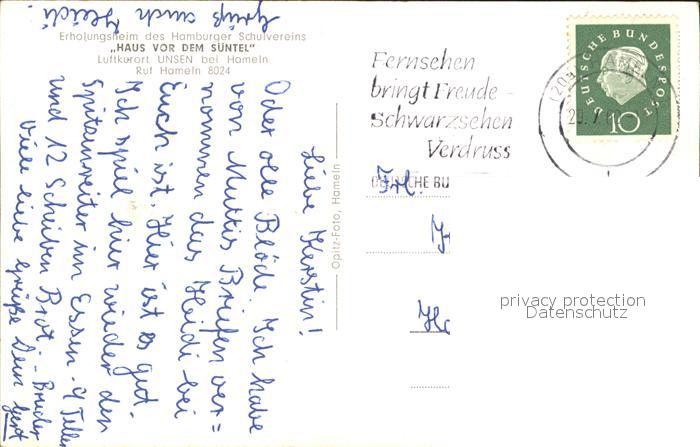 Erholungsheim des Hamburger Schulvereins
„HAUS VOR DEM SÜNTEL“
Luftkurort UNSEN bei Hameln
Ruf Hameln 8024
Liebe Kerstin!
Oder olle Blöde. Ich habe
von Muttis Briefen ver=
nommen das Heidi bei
Euch ist. Hier ist es gut.
Ich spiel hier wieder den
Spitzenreiter im Essen. 4 Teller
und 12 Scheiben Brot. - Bruder
Viele liebe Grüße Dein Gert
Grüß auch Heidi.
Opitz-Foto, Hameln
Fernsehen
bringt Freude -
Schwarzsehen
Verdruss
DEUTSCHE BUNDESPOST
10
(20a) HAMELN
Frl.
privacy protection
Datenschutz